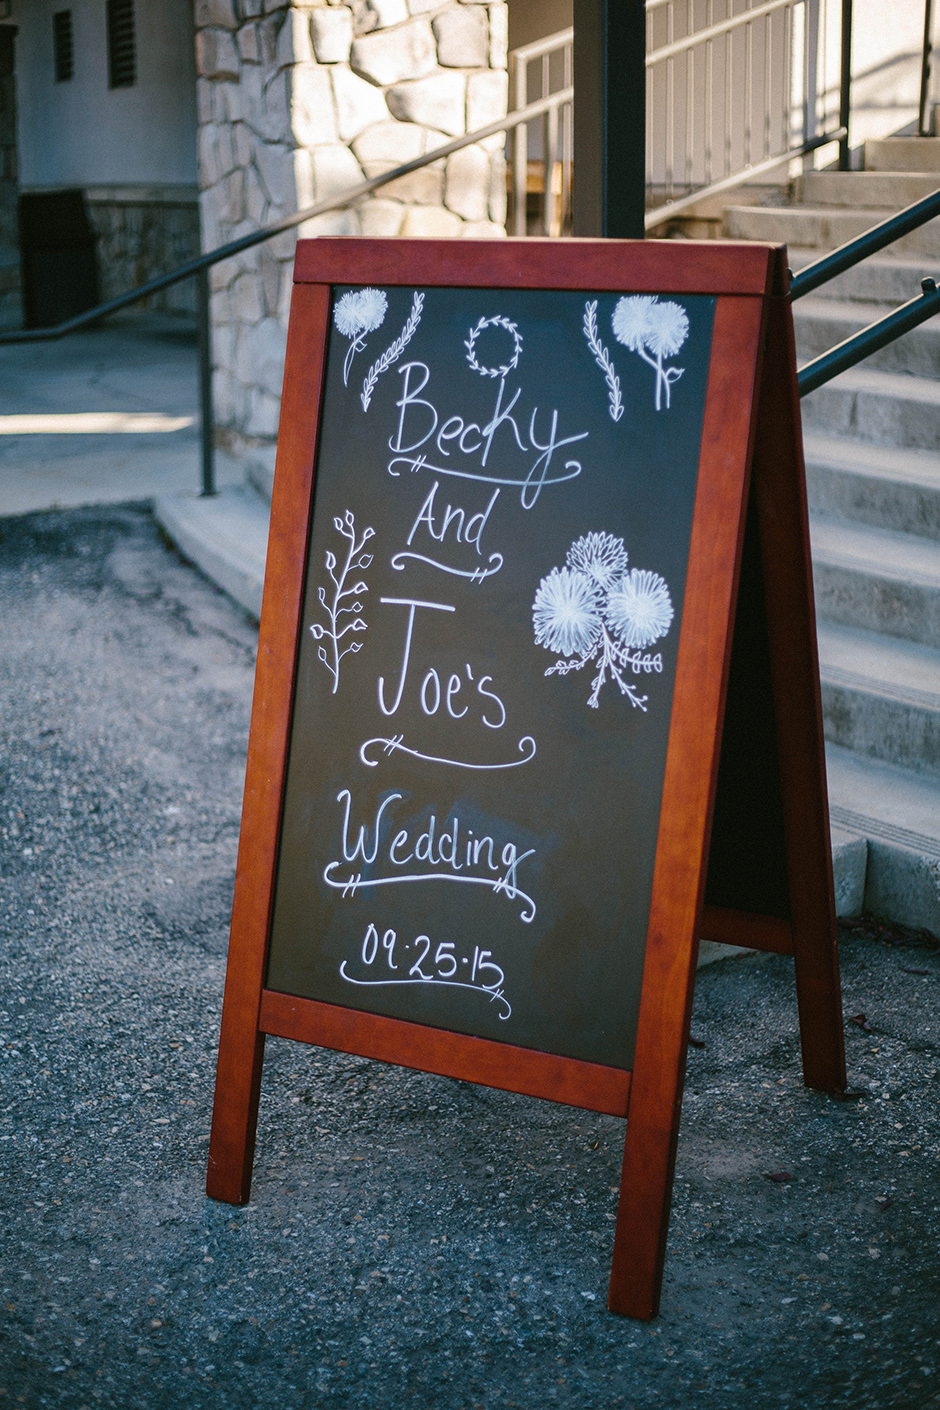 Becky
And
Joe's
Wedding
09·25·15